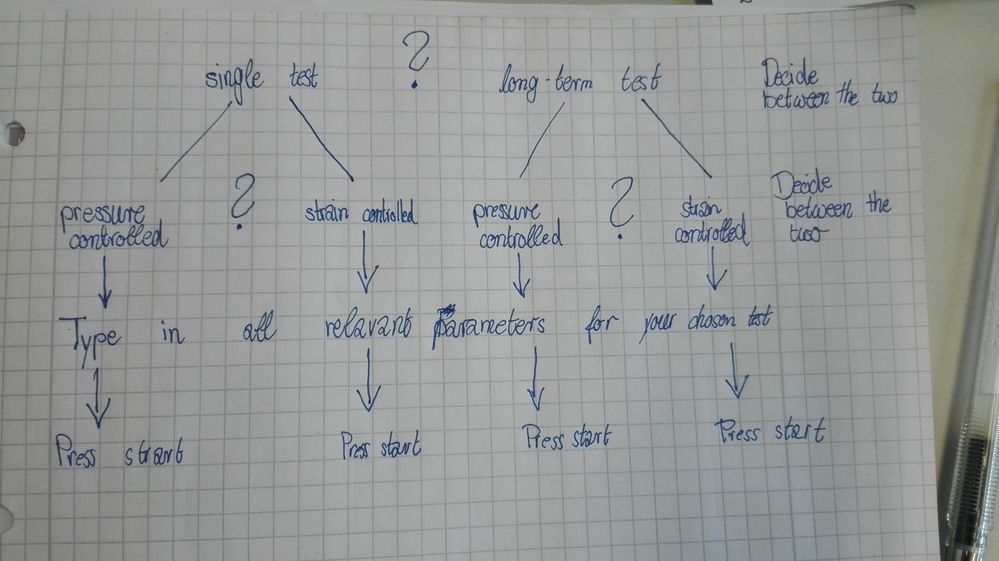 ?
single test long-term test Decide
between the two
pressure
controlled ? strain controlled pressure
controlled ? strain
controlled Decide
between the
two
Type in all relavant Parameters for your chosen test
Press strart Press start Press start Press start